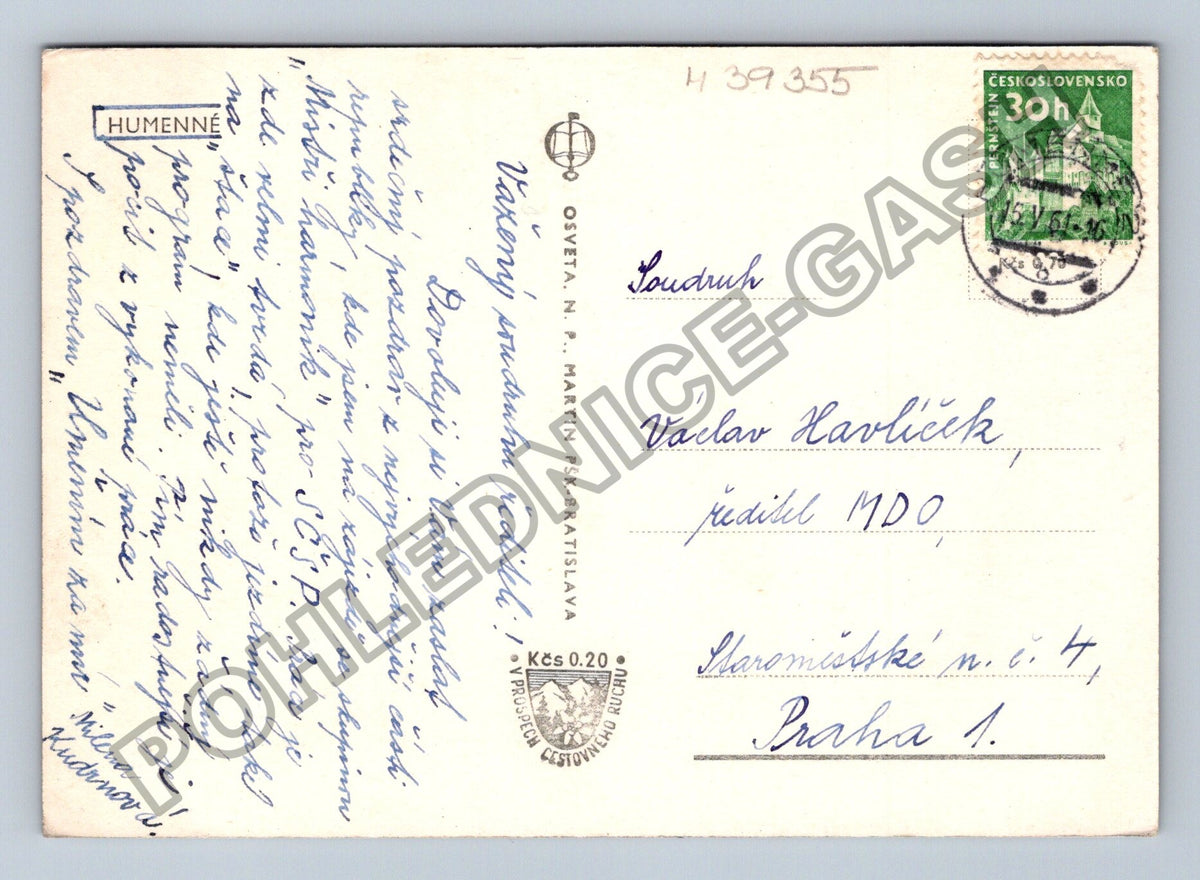 4 39355
HUMENNÉ
Vážený soudruhu řediteli!
Dovoluji si Vám zaslat
srdečný pozdrav z nejvýchodnější části
republiky, kde jsem na zájezdě se skupinou
"Mistři harmonik" pro SČSP. Práce je
zde velmi tvrdá, protože jezdíme
na "šta", kde ještě nikdy žádný
program neměli. Tím radostnější
pocit z vykonané práce.
S pozdravem "Uměním za mír"
Milena
Kudrnová.
OSVETA, N. P., MARTIN PŠK-BRATISLAVA
Kčs 0.20
V PROSPECH CESTOVNÉHO RUCHU
ČESKOSLOVENSKO
30h
PERNŠTEJN
15.V.61-16
Kčs 0,70
Soudruh
Václav Havlíček,
ředitel MDO,
Staroměstské n. č. 4,
Praha 1.
POHLEDNICE-GASH